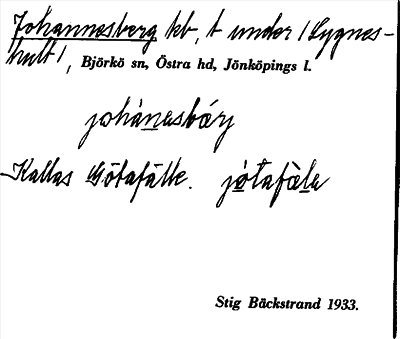 Johannesberg kb, t under /Lygnes-
hult/, Björkö sn, Östra hd, Jönköpings l.
johànesbárj
Kallas Götafälle. jötafàle
Stig Bäckstrand 1933.